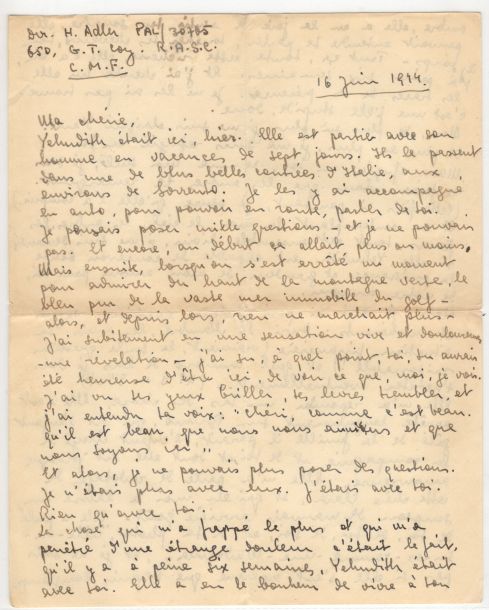 Dvr. H. Adler PAL/30705
650, G.T. Coy. R.A.S.C.
C.M.F.
16 Juin 1944.
Ma chérie,
Yehudith était ici, hier. Elle est partie avec son
homme en vacances de sept jours. Ils le passent
dans une de plus belles contrées d'Italie, aux
environs de Sorrento. Je les y ai accompagné
en auto, pour pouvoir en route, parler de toi.
Je pensais poser mille questions – et je ne pouvais
pas. Et encore, au début ça allait plus ou moins,
Mais ensuite, lorsqu'on s'est errêté un moment
pour admirer du haut de la montagne verte, le
bleu pur de la vaste mer immobile du golf –
alors, et depuis lors, rien ne marchait plus –
J'ai subitement eu une sensation vive et douloureuse
– une révélation – j'ai su, à quel point toi, tu aurais
été heureuse d'être ici, de voir ce que, moi, je vois.
J'ai vu tes yeux briller, tes levres trembler, et
j'ai entendu ta voix: "Chéri, comme c'est beau.
qu'il est beau que nous nous aimions et que
nous soyons ici"..
Et alors, je ne pouvais plus poser des questions.
Je n'étais plus avec eux. J'étais avec toi.
Rien qu'avec toi.
La chose qui m'a frappé le plus et qui m'a
penétré d'une étrange douleur c'était le fait,
qu'il y a à peine six semaines, Yehudith était
avec toi. Elle a eu le bonheur de vivre à ton